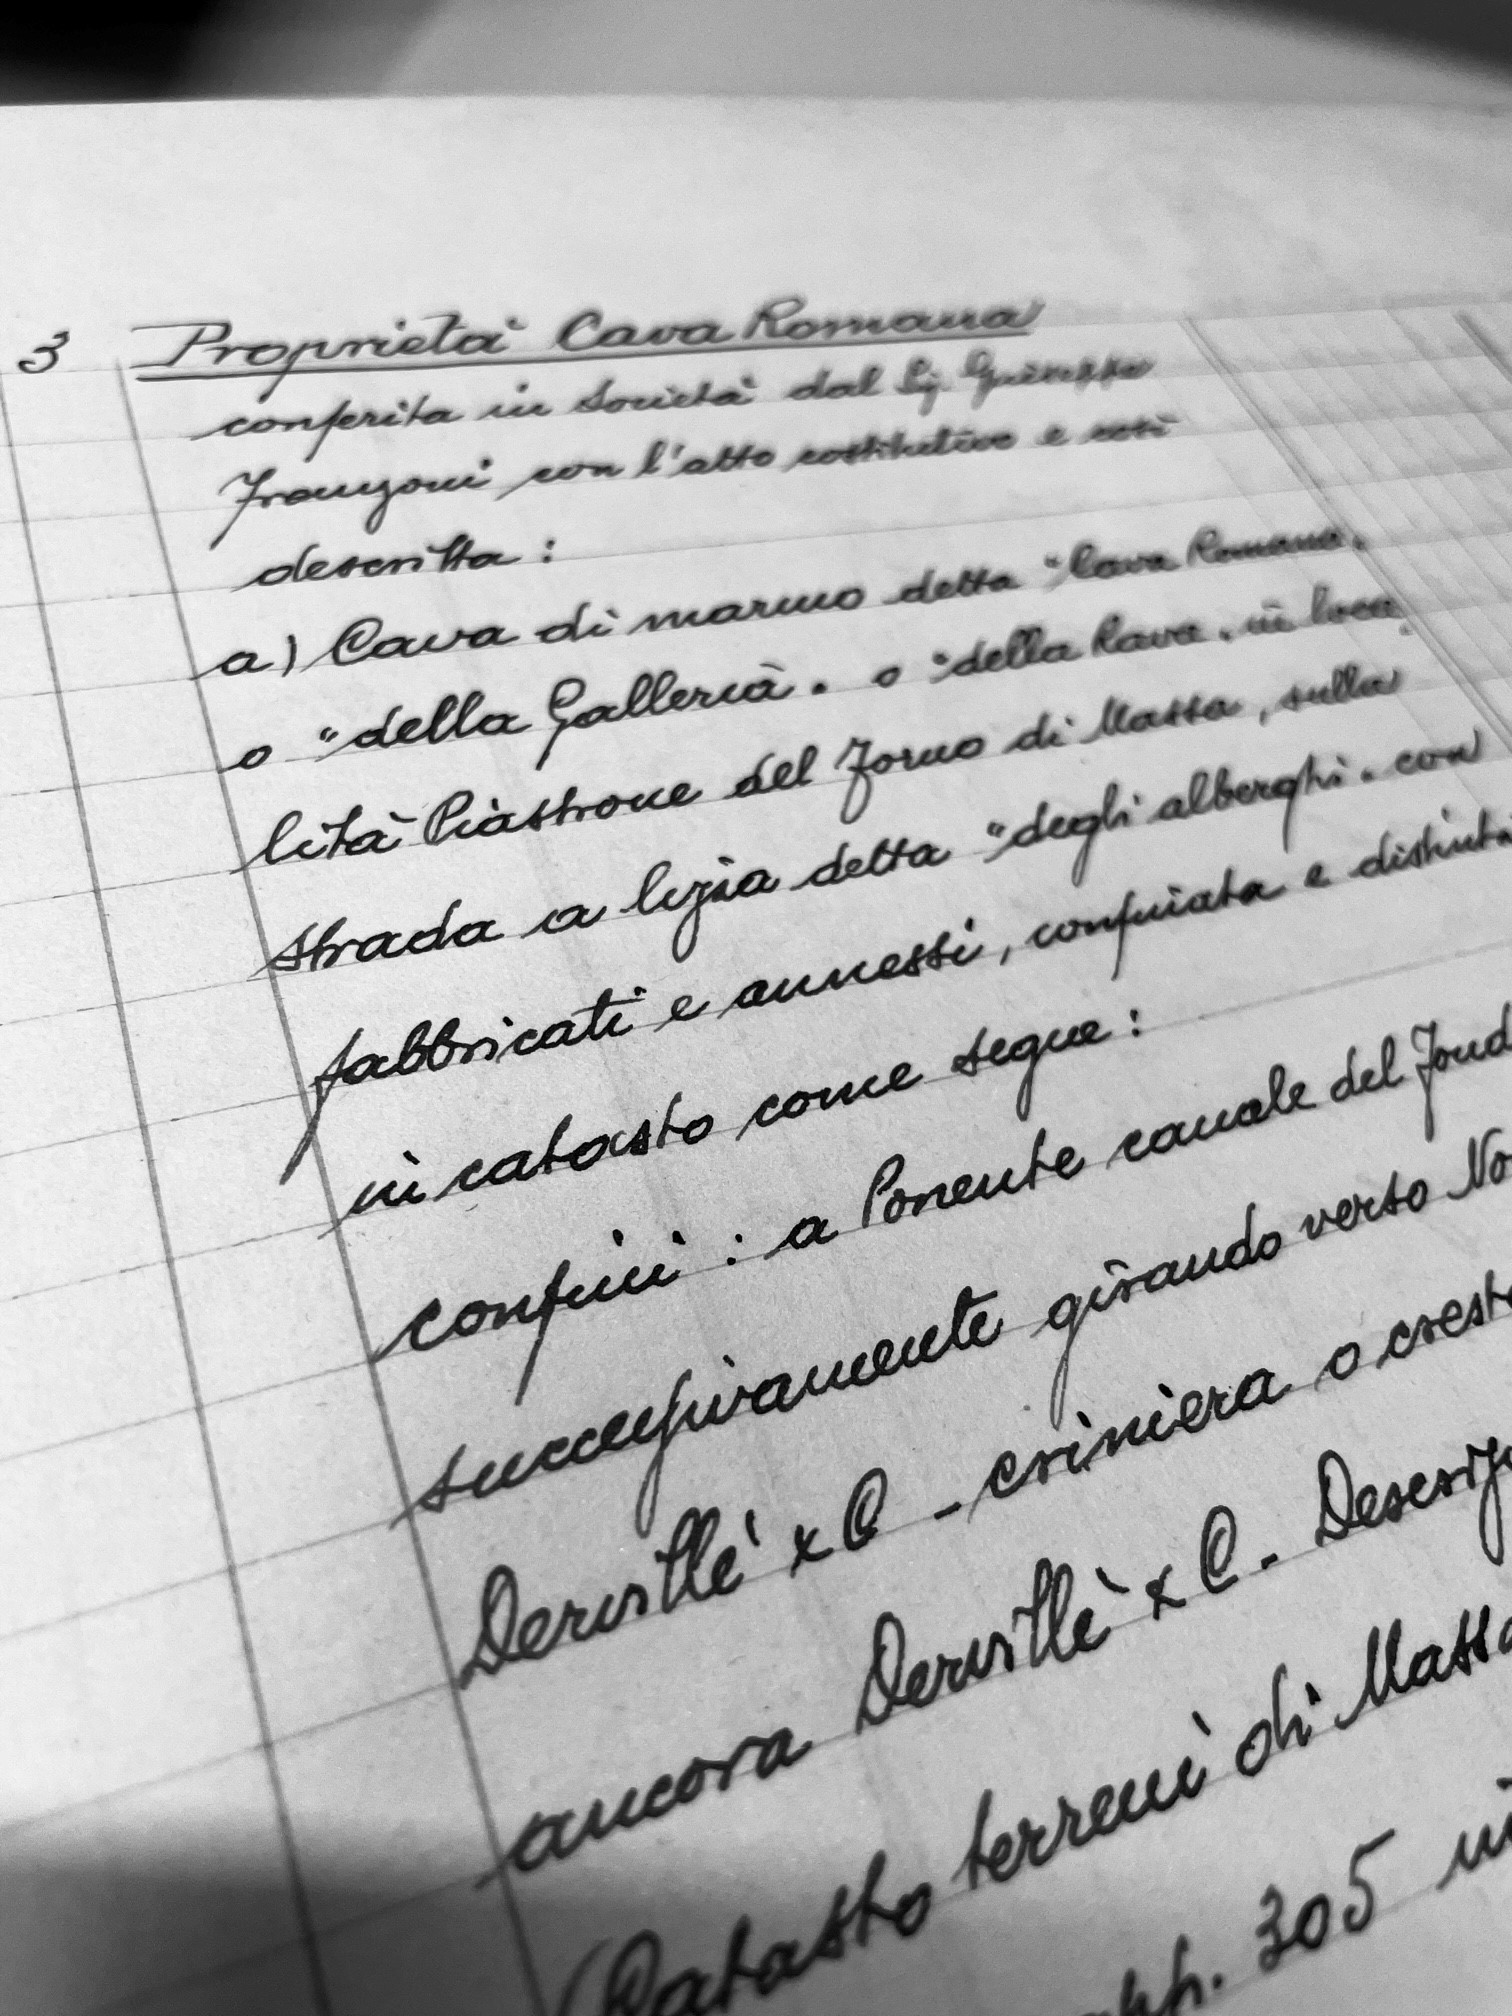 3 Proprietà Cava Romana
conferita in Società dal Sig. Giuseppe
Franzoni con l'atto costitutivo e così
descritta :
a) Cava di marmo detta "Cava Romana"
o "della Galleria" o "della Rava" in loca
lità Piastrone del Forno di Massa, sulla
strada a lizza detta "degli alberghi" con
fabbricati e annessi, confinata e distinta
in catasto come segue :
confini : a Ponente canale del Fond
successivamente girando verso No
Dervillè & C - criniera o crest
ancora Dervillè & C - Descriz
(Catasto terreni di Massa
305